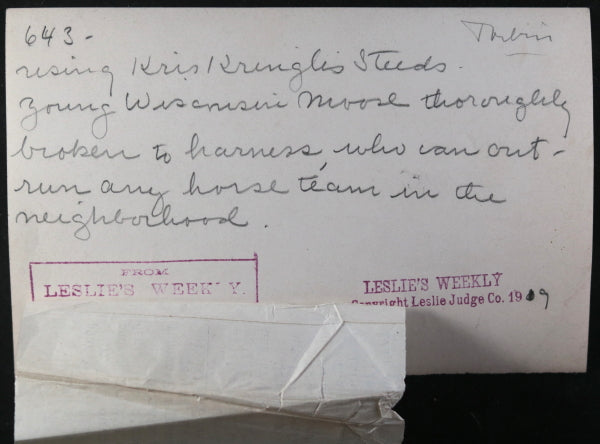 643 -
using Kris Kringlis Steeds.
Young Wisconsin Moose thoroughly
broken to harness, who can out-
run any horse team in the
neighborhood.
FROM
LESLIE'S WEEKLY.
LESLIE'S WEEKLY
Copyright Leslie Judge Co. 1909